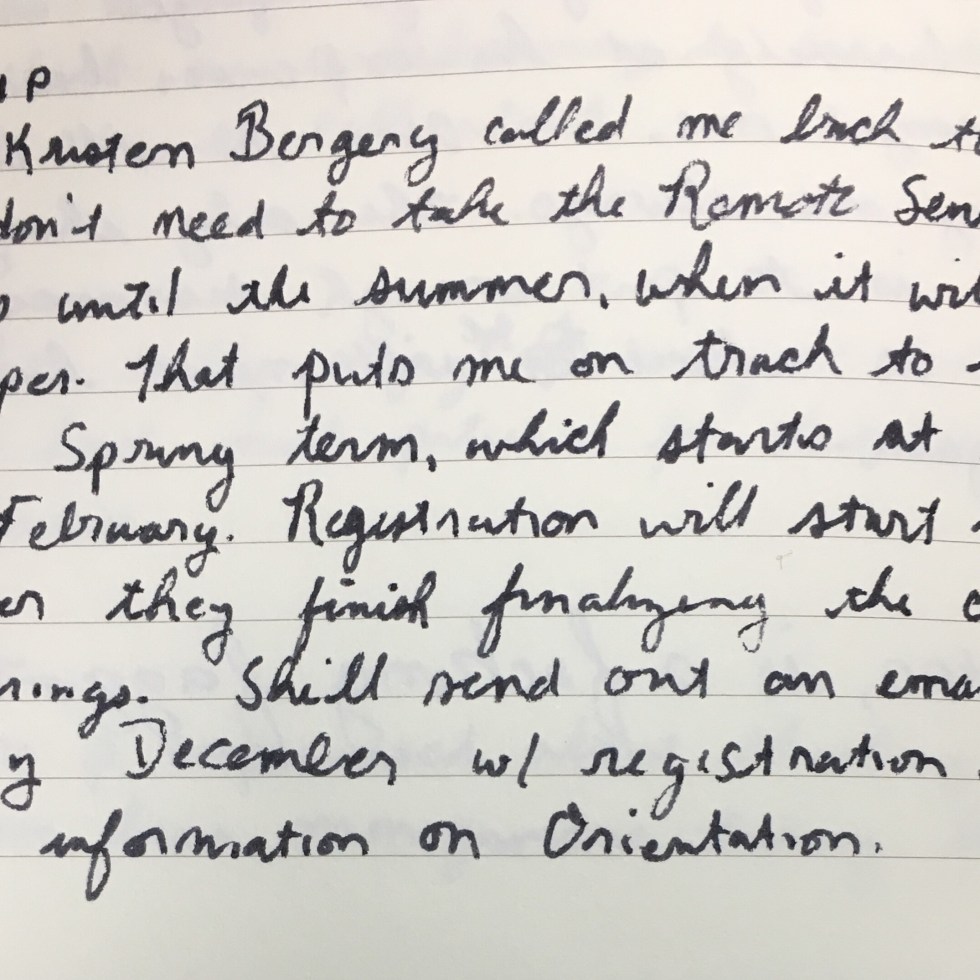 IP
Kristen Bergery called me back to
don't need to take the Remote Sen
until the summer, when it wil
per. That puts me on track to
Spring term, which starts at
February. Registration will start
er they finish finalizing the c
rings. She'll send out an ema
y December w/ registration
information on Orientation.